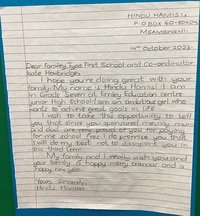 HINDU HAMISI,
P.O BOX 60-80404
MSAMBWENI.
14th October 2023.
Dear Tyas First School and Co-ordinator
Kate Howbridge,
I hope you're doing great with your
family. My name is Hindu Hamisi. I am
in Grade Seven at Emsley Education centre
junior High School. I am an ambitious girl who
wants to achieve great goals in life.
I wish to take this opportunity to tell
you that since you sponsored me, my mum
and dad are very proud of you for paying
for me school fees. I do promise you that
I will do my best not to disappoint you in
this third term.
My family and I really wish you and
your family a happy merry christmas and a
happy new year.
Yours Sincerely,
Hindu Hamisi.